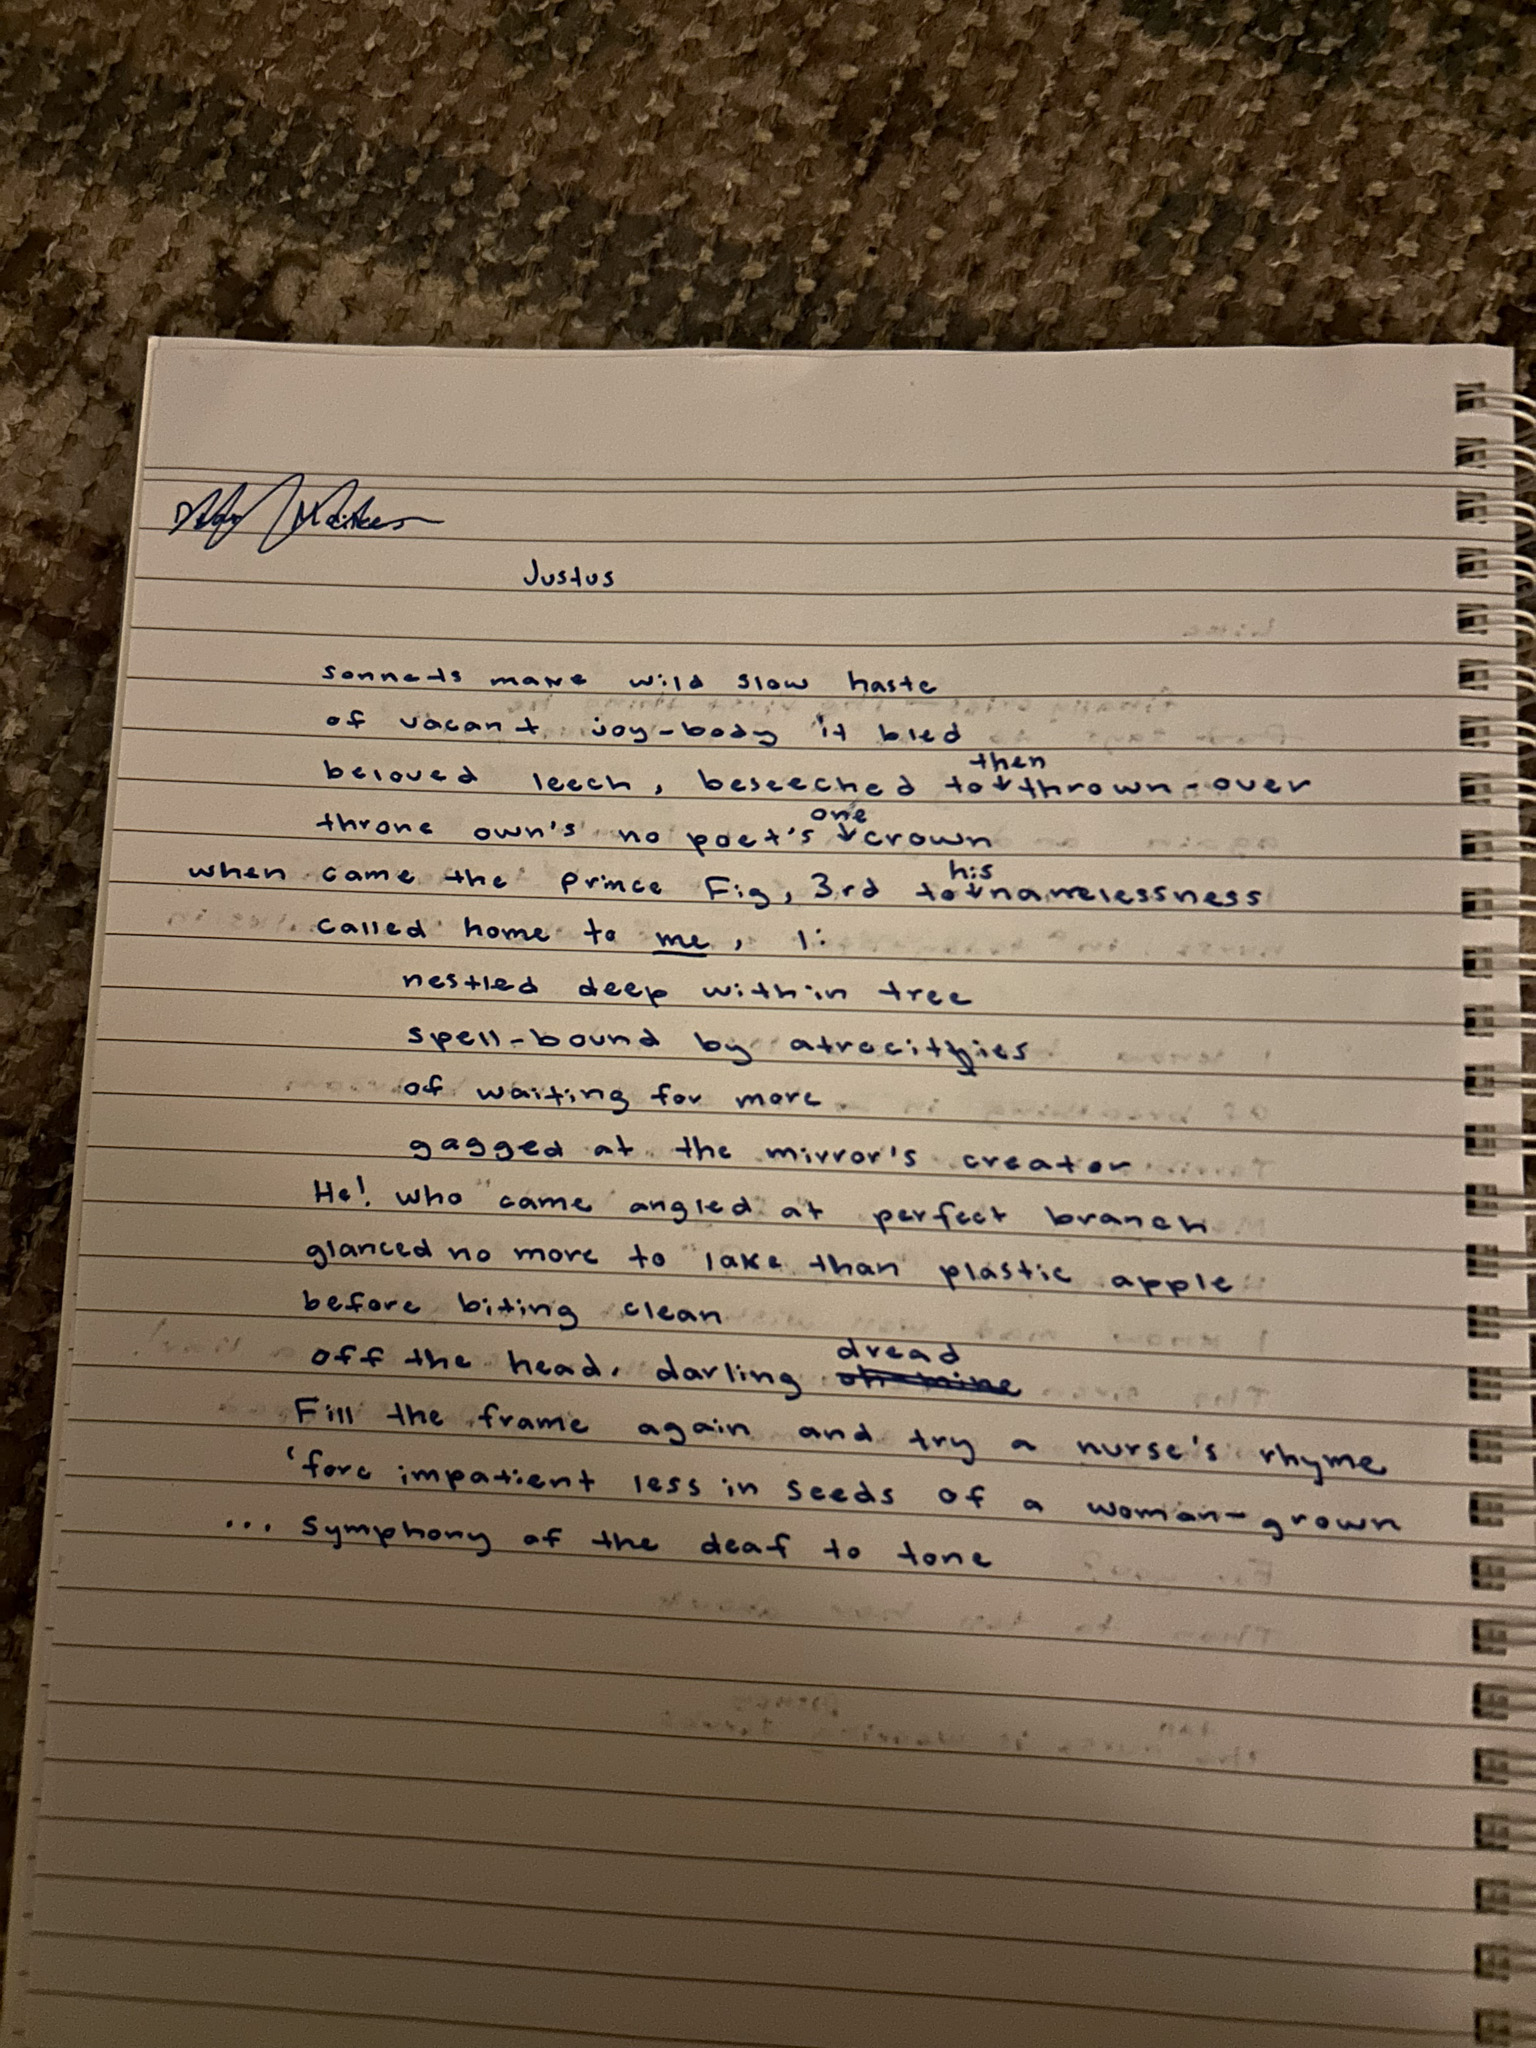 Justus
sonnets make wild slow haste
of vacant joy-body it bled
beloved leech, beseeched to then thrown-over
throne own's no poet's one crown
when came the Prince Fig, 3rd to his namelessness
called home to me, I:
nestled deep within tree
spell-bound by atrocities
of waiting for more
gagged at the mirror's creator
He! who came angled at perfect branch
glanced no more to lake than plastic apple
before biting clean
off the head. darling dread
Fill the frame again and try a nurse's rhyme
'fore impatient less in seeds of a woman-grown
... symphony of the deaf to tone